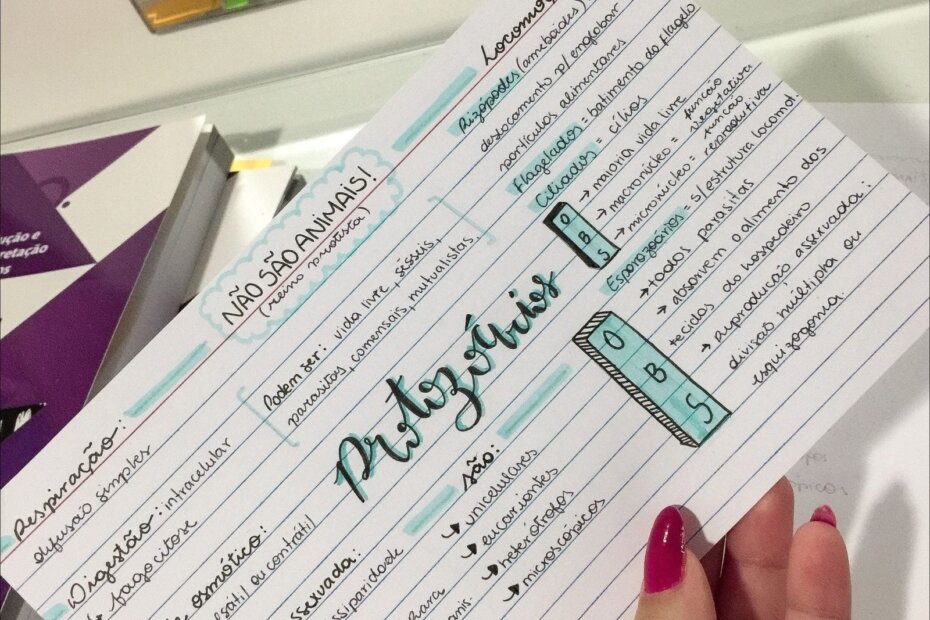 NÃO SÃO ANIMAIS!
(reino protista)
Respiração:
difusão simples
Digestão: intracelular
fagocitose
osmótico:
sátil ou contrátil
ssexuada:
ssiparidade
para
anis.
[Podem ser: vida livre, sésseis,
parasitas, comensais, mutualistas.]
Protozoários
são:
→ unicelulares
→ eucariontes
→ heterótrofos
→ microscópicos
Locomoç
Rizópodes (ameboides)
deslocamento p/ englobar
partículas alimentares
Flagelados = batimento do flagelo
Ciliados = cílios
OBS
→ maioria vida livre
→ macronúcleo = função vegetativa
→ micronúcleo = função reprodutiva
Esporozoários = s/ estrutura locomot
OBS
→ todos parasitas
→ absorvem o alimento dos
tecidos do hospedeiro
→ reprodução assexuada:
divisão múltipla ou
esquizogonia.
ução e
retação
os